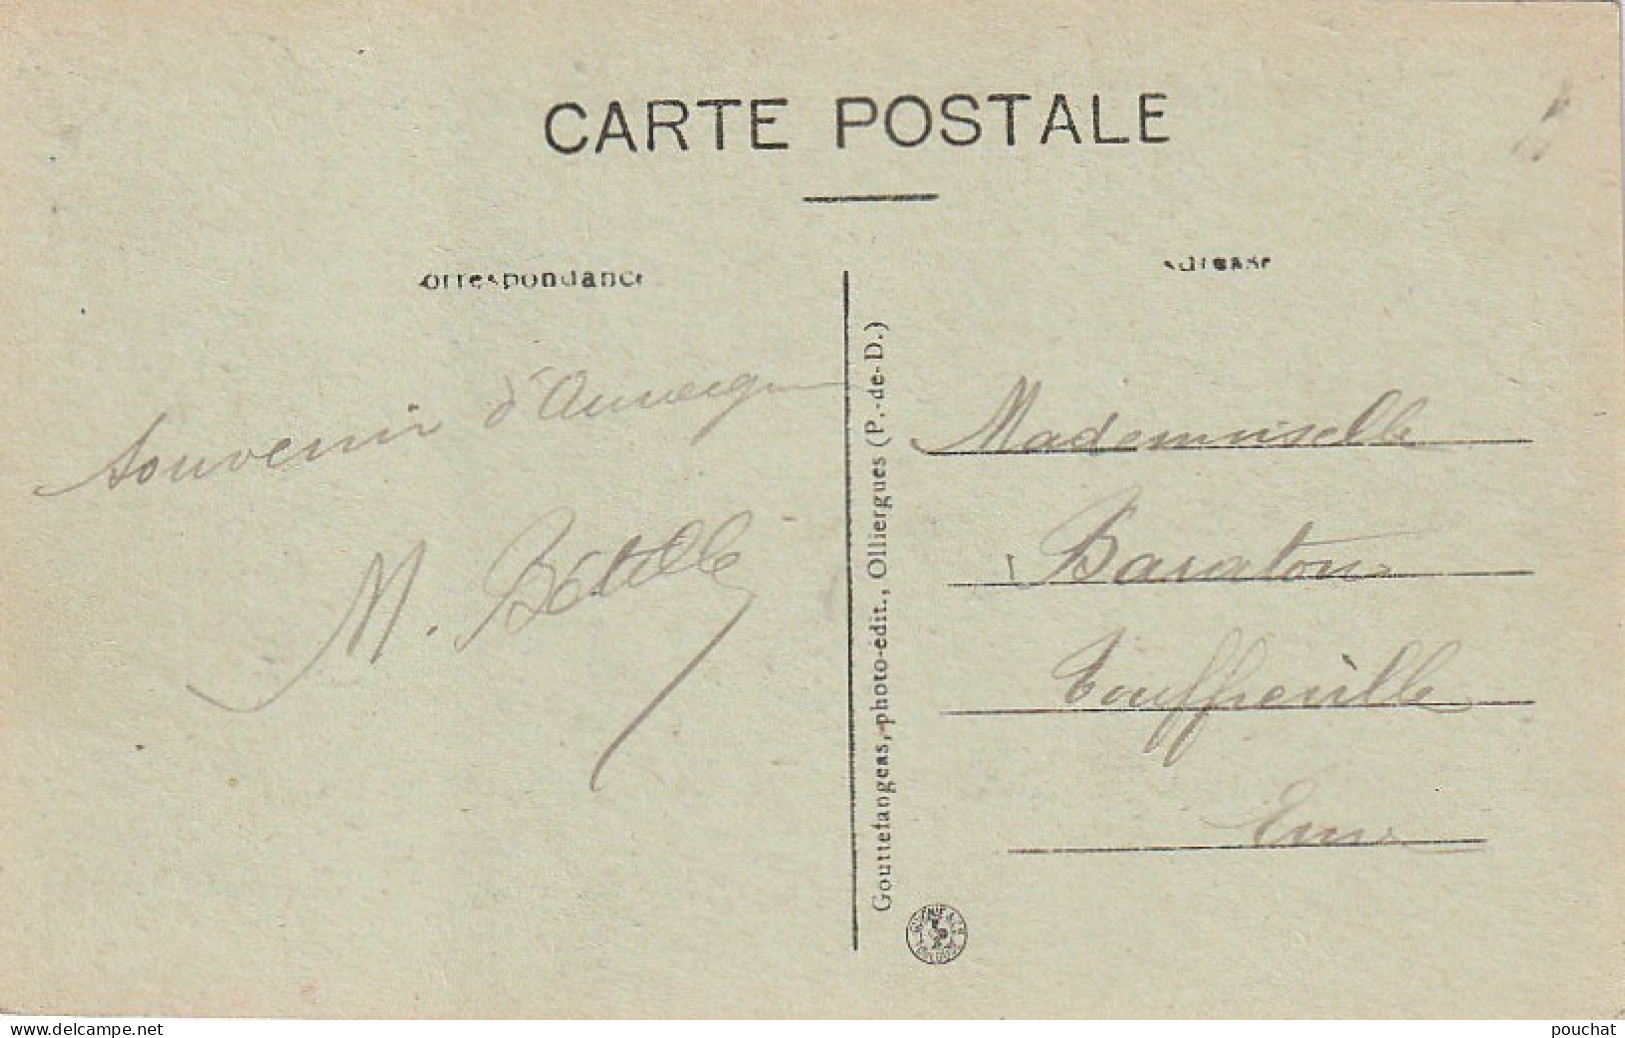 CARTE POSTALE
Correspondance
Adresse
Souvenir d'Auvergne
M. Bétille
Gouttefangeas, photo-édit., Olliergues (P.-de-D.)
Mademoiselle
Baraton
Touffreville
Eure
www.delcampe.net
pouchat